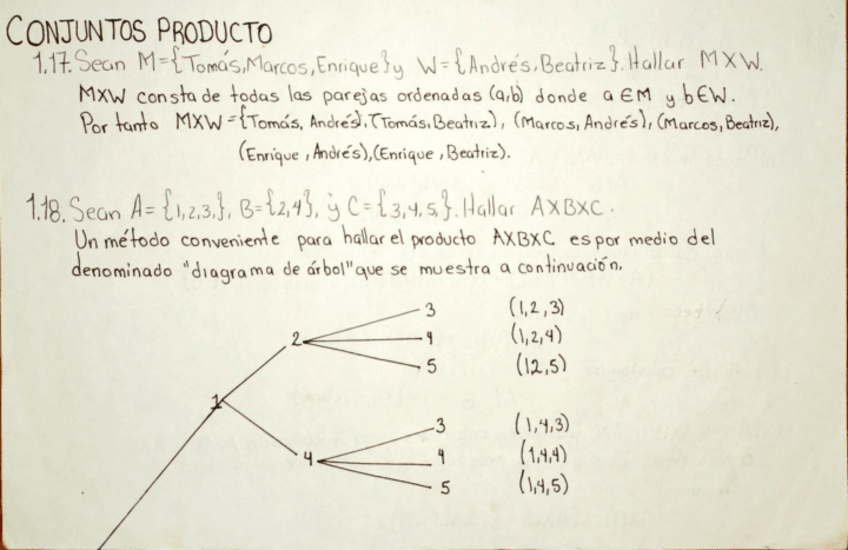 CONJUNTOS PRODUCTO
1.17. Sean M={Tomás,Marcos,Enrique} y W={Andrés,Beatriz}. Hallar MXW.
MXW consta de todas las parejas ordenadas (a,b) donde a ∈M y b∈W.
Por tanto MXW={Tomás, Andrés},(Tomás,Beatriz), (Marcos,Andrés), (Marcos,Beatriz),
(Enrique, Andrés),(Enrique, Beatriz).
1.18. Sean A={1,2,3,}, B={2,4}, y C={3,4,5}. Hallar AXBXC.
Un método conveniente para hallar el producto AXBXC es por medio del
denominado "diagrama de árbol" que se muestra a continuación.
3 (1,2,3)
2 4 (1,2,4)
5 (12,5)
1
3 (1,4,3)
4 4 (1,4,4)
5 (1,4,5)